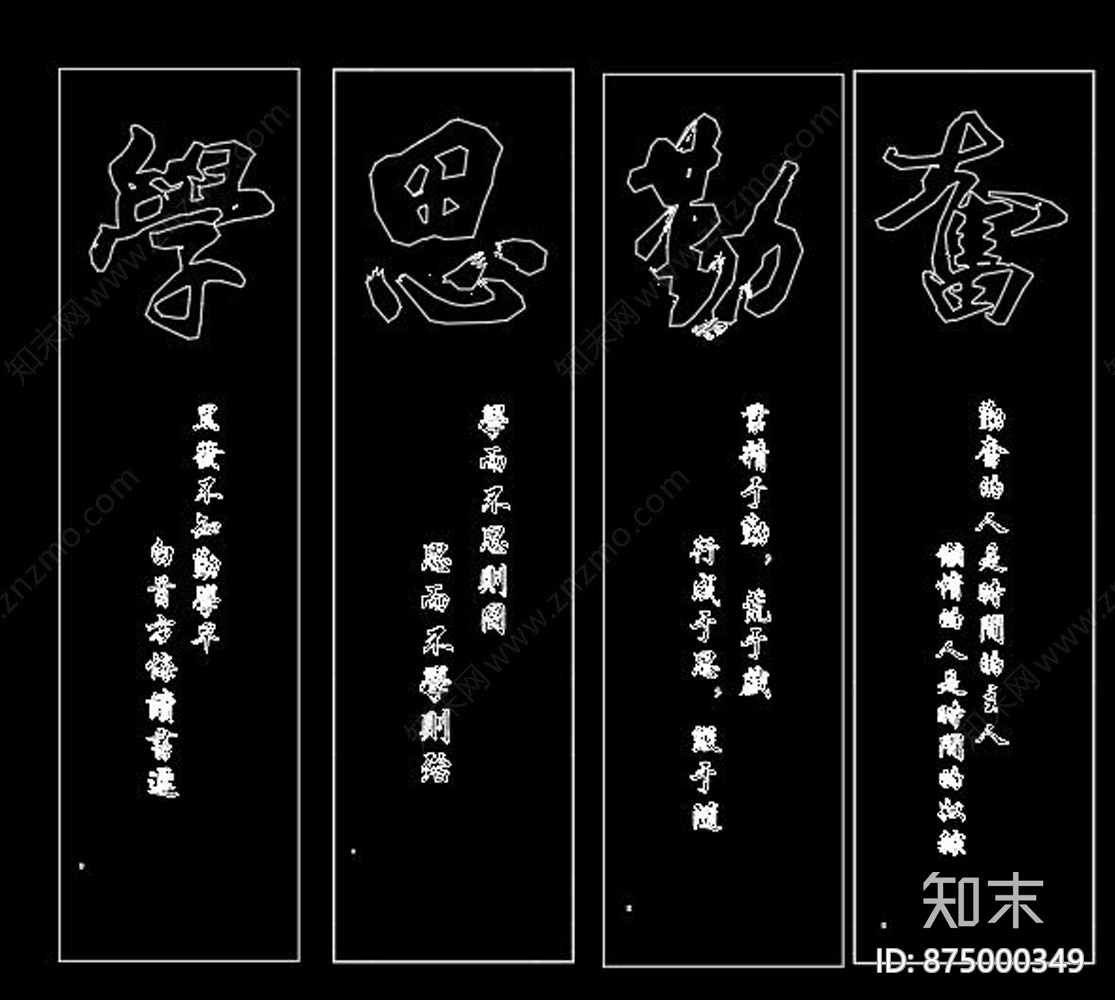 學
黑發不知勤學早
白首方悔讀書遲
思
學而不思則罔
思而不學則殆
勤
業精于勤，荒于嬉
行成于思，毀于隨
奮
勤奮的人是時間的主人
懶惰的人是時間的奴隸
知末
ID: 875000349
知末网 www.znzmo.com
知末网 www.znzmo.com
知末网 www.znzmo.com